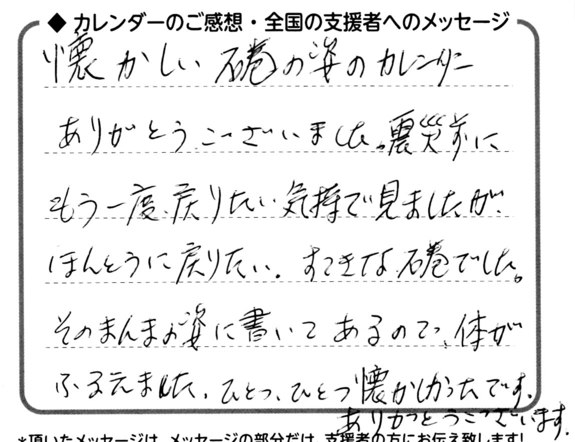 ◆ カレンダーのご感想・全国の支援者へのメッセージ
懐かしい石巻の姿のカレンダー
ありがとうございました。震災前に
もう一度、戻りたい気持で見ましたが、
ほんとうに戻りたい。すてきな石巻でした。
そのまんまの姿に書いてあるので、体が
ふるえました、ひとつ、ひとつ懐かしかったです。
ありがとうございます。
*頂いたメッセージは、メッセージの部分だけ、支援者の方にお伝え致します!